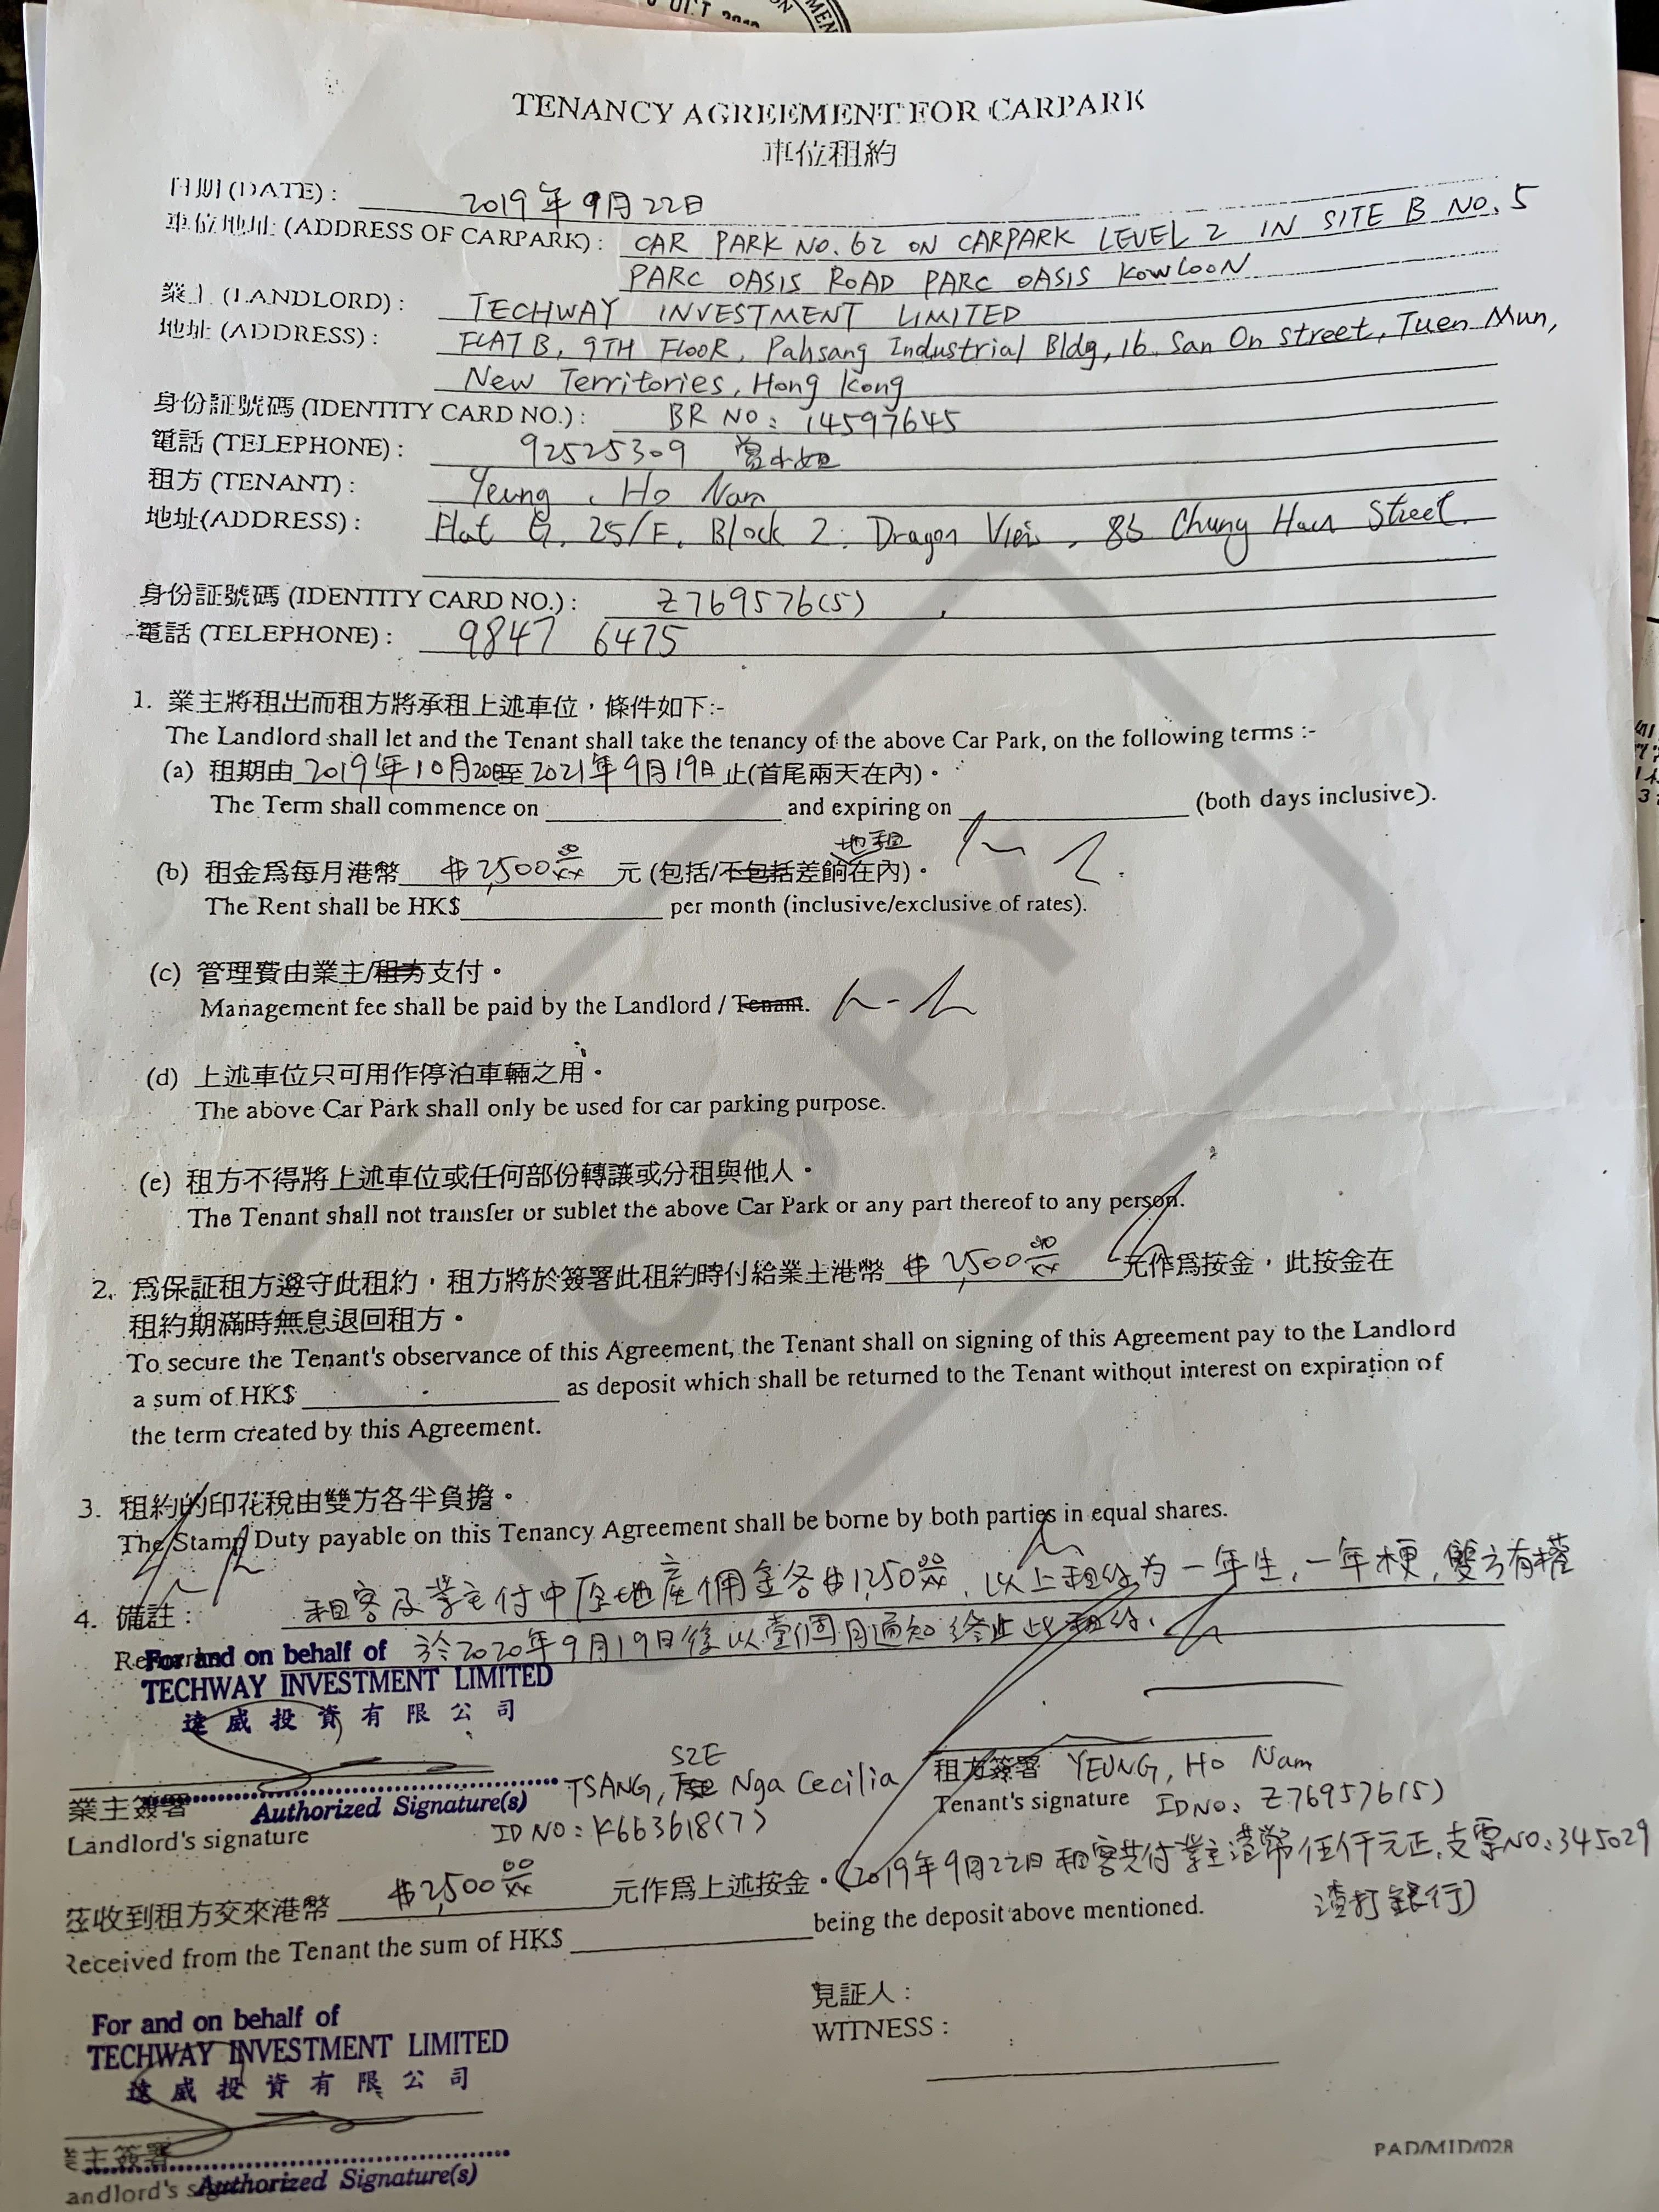 TENANCY AGREEMENT FOR CARPARK
車位租約
日期 (DATE) : 2019年9月22日
車位地址 (ADDRESS OF CARPARK) : CAR PARK NO. 62 ON CARPARK LEVEL 2 IN SITE B NO. 5
PARC OASIS ROAD PARC OASIS KOWLOON
業主 (LANDLORD) : TECHWAY INVESTMENT LIMITED
地址 (ADDRESS) : FLAT B, 9TH FLOOR, Pahsang Industrial Bldg, 16 San On Street, Tuen Mun,
New Territories, Hong Kong
身份証號碼 (IDENTITY CARD NO.) : BR NO: 14597645
電話 (TELEPHONE) : 92525309 小姐
租方 (TENANT) : Yeung, Ho Nam
地址(ADDRESS) : Flat G, 25/F, Block 2, Dragon View, Chung Street
身份証號碼 (IDENTITY CARD NO.) : Z769576(5)
電話 (TELEPHONE) : 9847 6475
1. 業主將租出而租方將承租上述車位，條件如下:-
The Landlord shall let and the Tenant shall take the tenancy of the above Car Park, on the following terms :-
(a) 租期由 2019年10月20日至 2021年9月19日 止(首尾兩天在內)。
The Term shall commence on and expiring on (both days inclusive).
地租
(b) 租金為每月港幣 $2,500 00/xx 元 (包括/不包括差餉在內)。
The Rent shall be HK$ per month (inclusive/exclusive of rates).
(c) 管理費由業主/租方支付。
Management fee shall be paid by the Landlord / Tenant.
(d) 上述車位只可用作停泊車輛之用。
The above Car Park shall only be used for car parking purpose.
(e) 租方不得將上述車位或任何部份轉讓或分租與他人。
The Tenant shall not transfer or sublet the above Car Park or any part thereof to any person.
2. 為保証租方遵守此租約，租方將於簽署此租約時付給業主港幣 $2,500 00/xx 元作為按金，此按金在
租約期滿時無息退回租方。
To secure the Tenant's observance of this Agreement, the Tenant shall on signing of this Agreement pay to the Landlord
a sum of HK$ as deposit which shall be returned to the Tenant without interest on expiration of
the term created by this Agreement.
3. 租約的印花稅由雙方各半負擔。
The Stamp Duty payable on this Tenancy Agreement shall be borne by both parties in equal shares.
4. 備註 : 租客及業主付中原地產佣金各$1,250 00/xx, 以上租約为一年生, 一年梗, 雙方有權
Remarks 於2020年9月19日後以壹個月通知終止此租約.
For and on behalf of
TECHWAY INVESTMENT LIMITED
達威投資有限公司
Authorized Signature(s)
業主簽署 TSANG, SZE Nga Cecilia
Landlord's signature ID NO: K663618(7)
租方簽署 YEUNG, Ho Nam
Tenant's signature ID NO: Z769576(5)
茲收到租方交來港幣 $2,500 00/xx 元作為上述按金。(2019年9月22日租客共付業主港幣伍仟元正,支票NO:345029
渣打銀行)
Received from the Tenant the sum of HK$ being the deposit above mentioned.
For and on behalf of
TECHWAY INVESTMENT LIMITED
達威投資有限公司
Authorized Signature(s)
業主簽署
andlord's
見証人 :
WITNESS :
PAD/MID/028
COPY